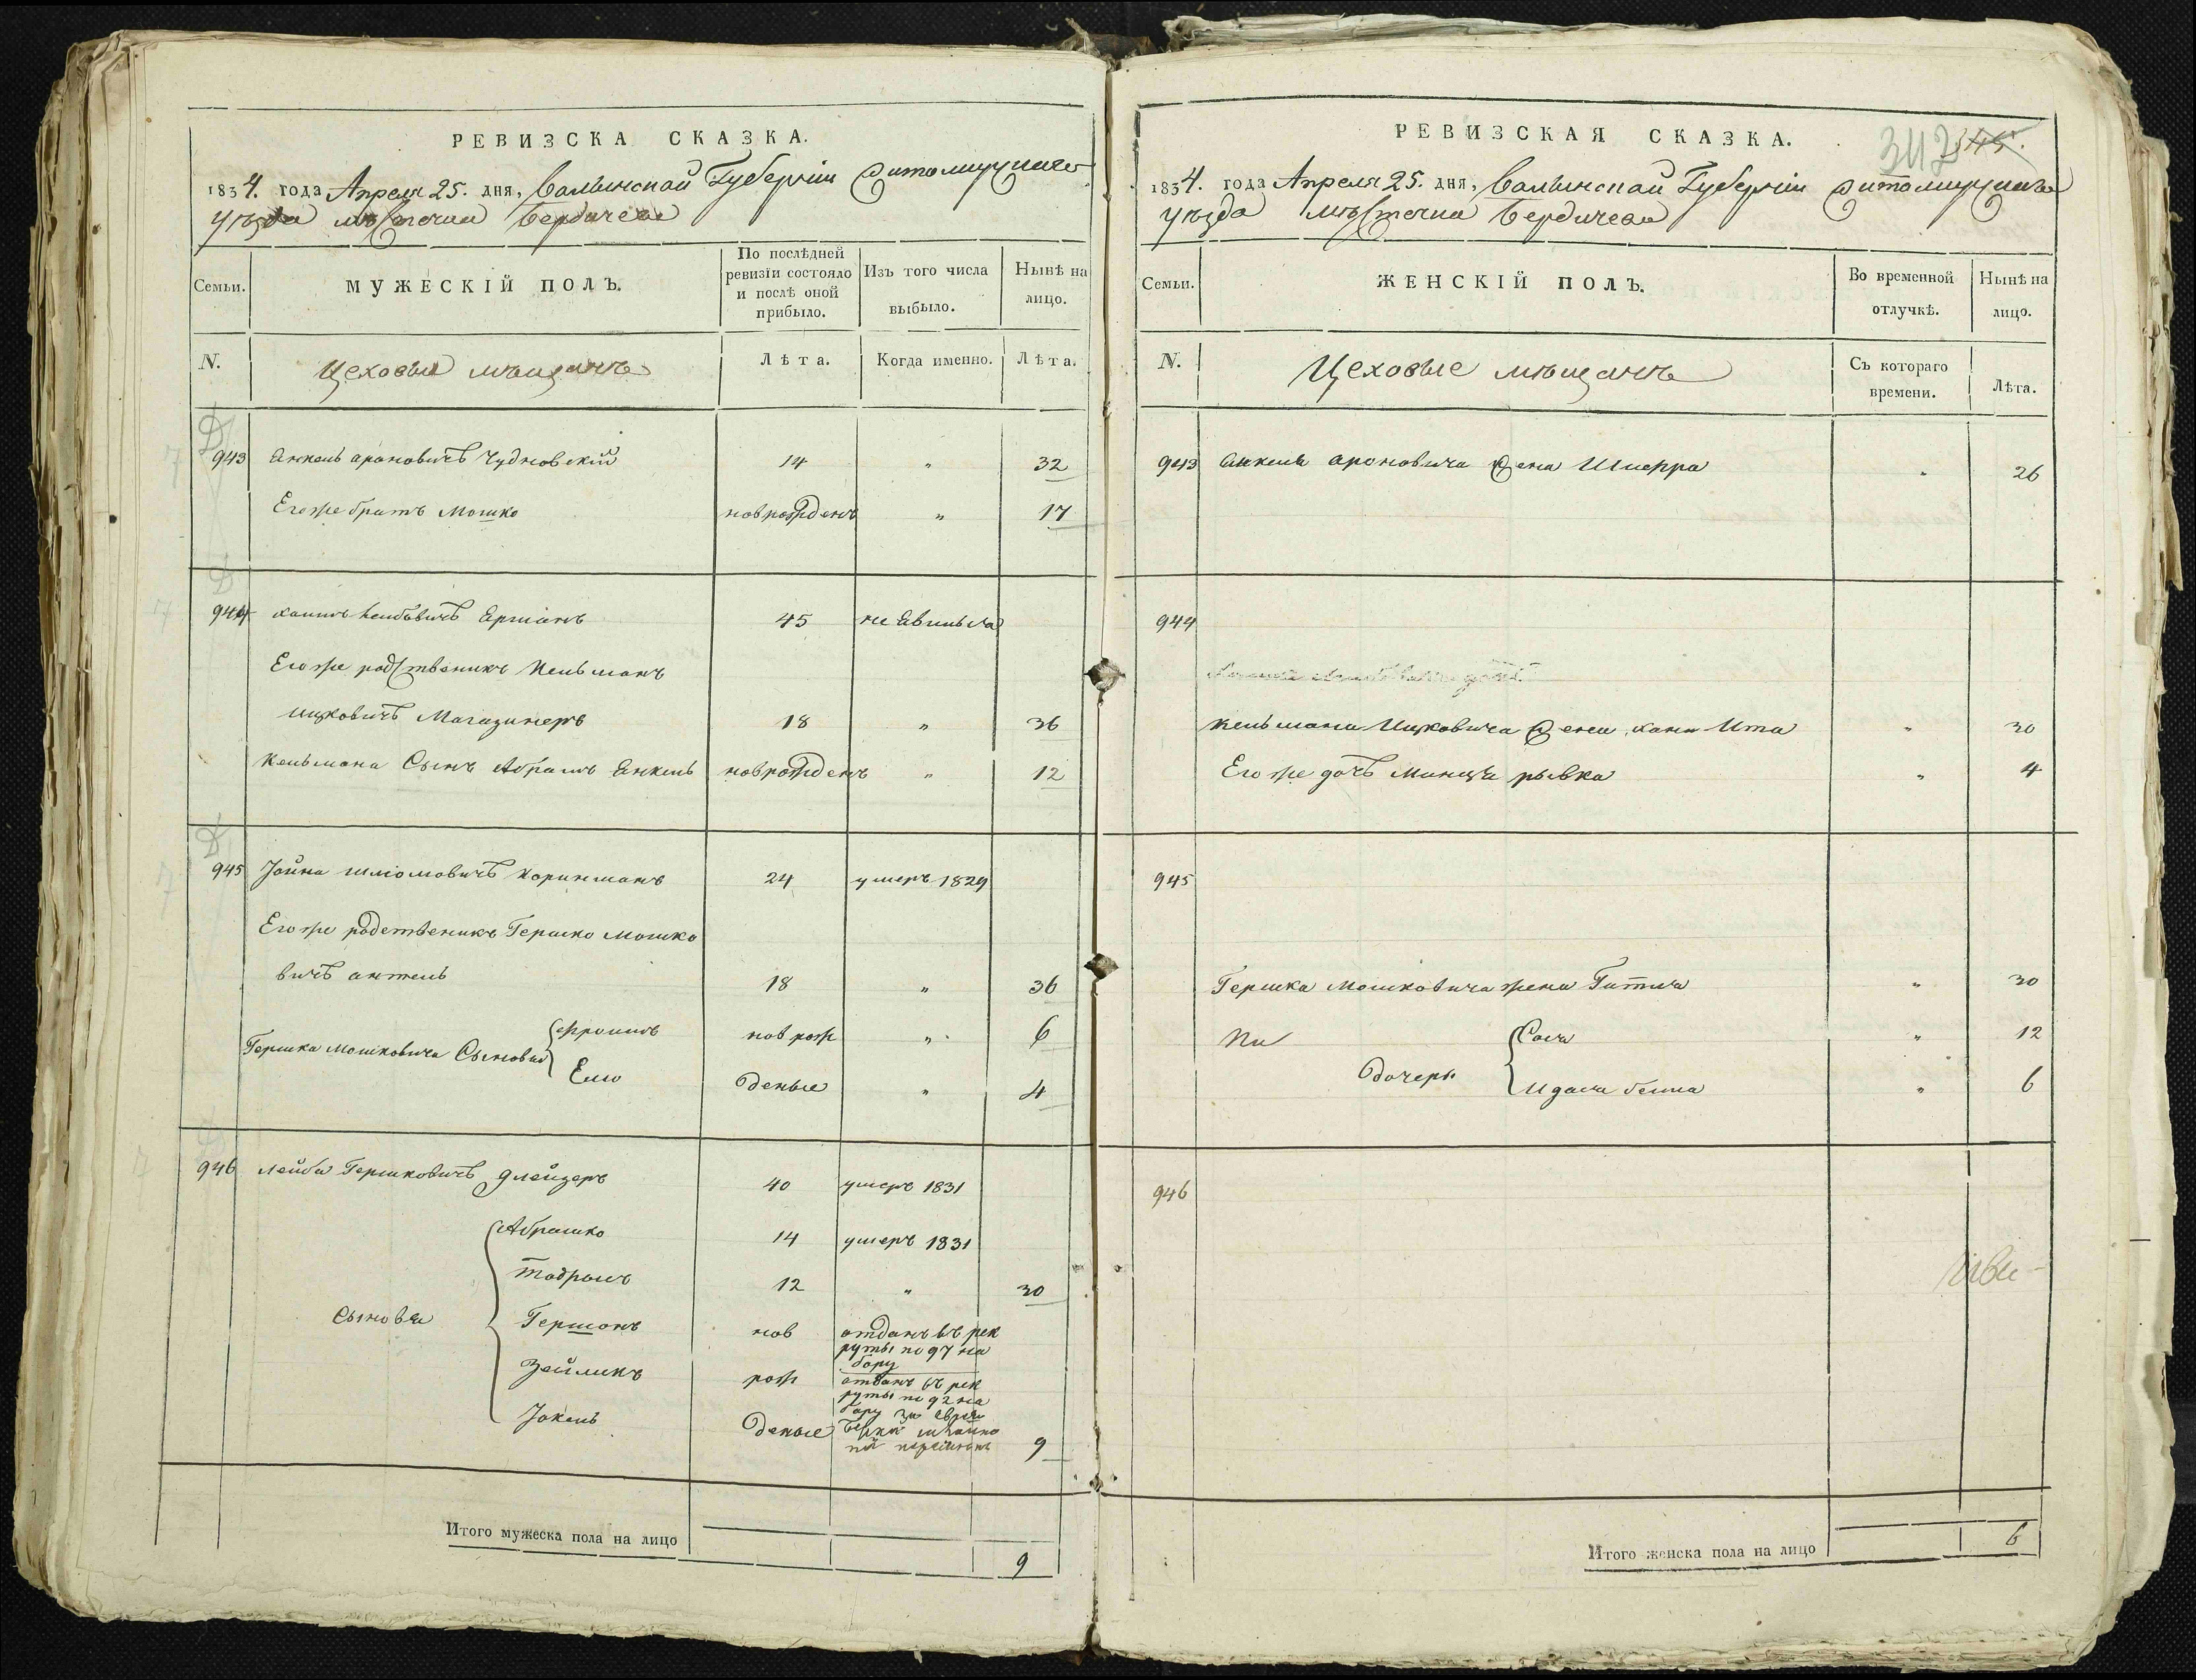 РЕВИЗСКА СКАЗКА.
1834. года Апреля 25. дня, Валынской Губерніи Житомирскаго
уѣзда мѣстечка Бердичева
Семьи.
МУЖЕСКІЙ ПОЛЪ.
По послѣдней ревизіи состояло и послѣ оной прибыло.
Изъ того числа выбыло.
Нынѣ на лицо.
N.
Цеховые мѣщанъ
Лѣта.
Когда именно.
Лѣта.
943 Янкель Ароновичъ Чудновскій 14 „ 32
Его же братъ Мошко новрожденъ „ 17
944 Ершанъ 45 не явился
Его же родственикъ Кельманъ
Ицковичъ Магазинеръ 18 „ 36
Кельмана Сынъ Абрамъ Янкель новрожденъ „ 12
945 Іойна Шліомовичъ 24 умеръ 1829
Его же родственикъ Гершко Мошко
вичъ антель 18 „ 36
Гершка Мошковича Сыновья { Фроимъ нов рож „ 6
Елю деные „ 4
946 Лейба Гершковичъ 40 умеръ 1831
Абрашко 14 умеръ 1831
Тодрысъ 12 „ 30
Сыновья
Гершонъ нов отданъ въ рек
руты по 97 на
бору
Зейликъ рож отданъ въ рек
руты по 92 на
бору за
Іокель деные 9
Итого мужеска пола на лицо 9
РЕВИЗСКАЯ СКАЗКА.
1834. года Апреля 25. дня, Валынской Губерніи Житомирскаго
уѣзда мѣстечка Бердичева
Семьи.
ЖЕНСКІЙ ПОЛЪ.
Во временной отлучкѣ.
Нынѣ на лицо.
N.
Цеховые мѣщанъ
Съ котораго времени.
Лѣта.
943 Янкеля Ароновича жена „ 26
944
Кельмана Ицковича жена хана Ита „ 30
Его же дочъ рывка „ 4
945
Гершка Мошковича жена Гитля „ 30
Сося „ 12
дочеры {
бейла „ 6
946
Итого женска пола на лицо 6